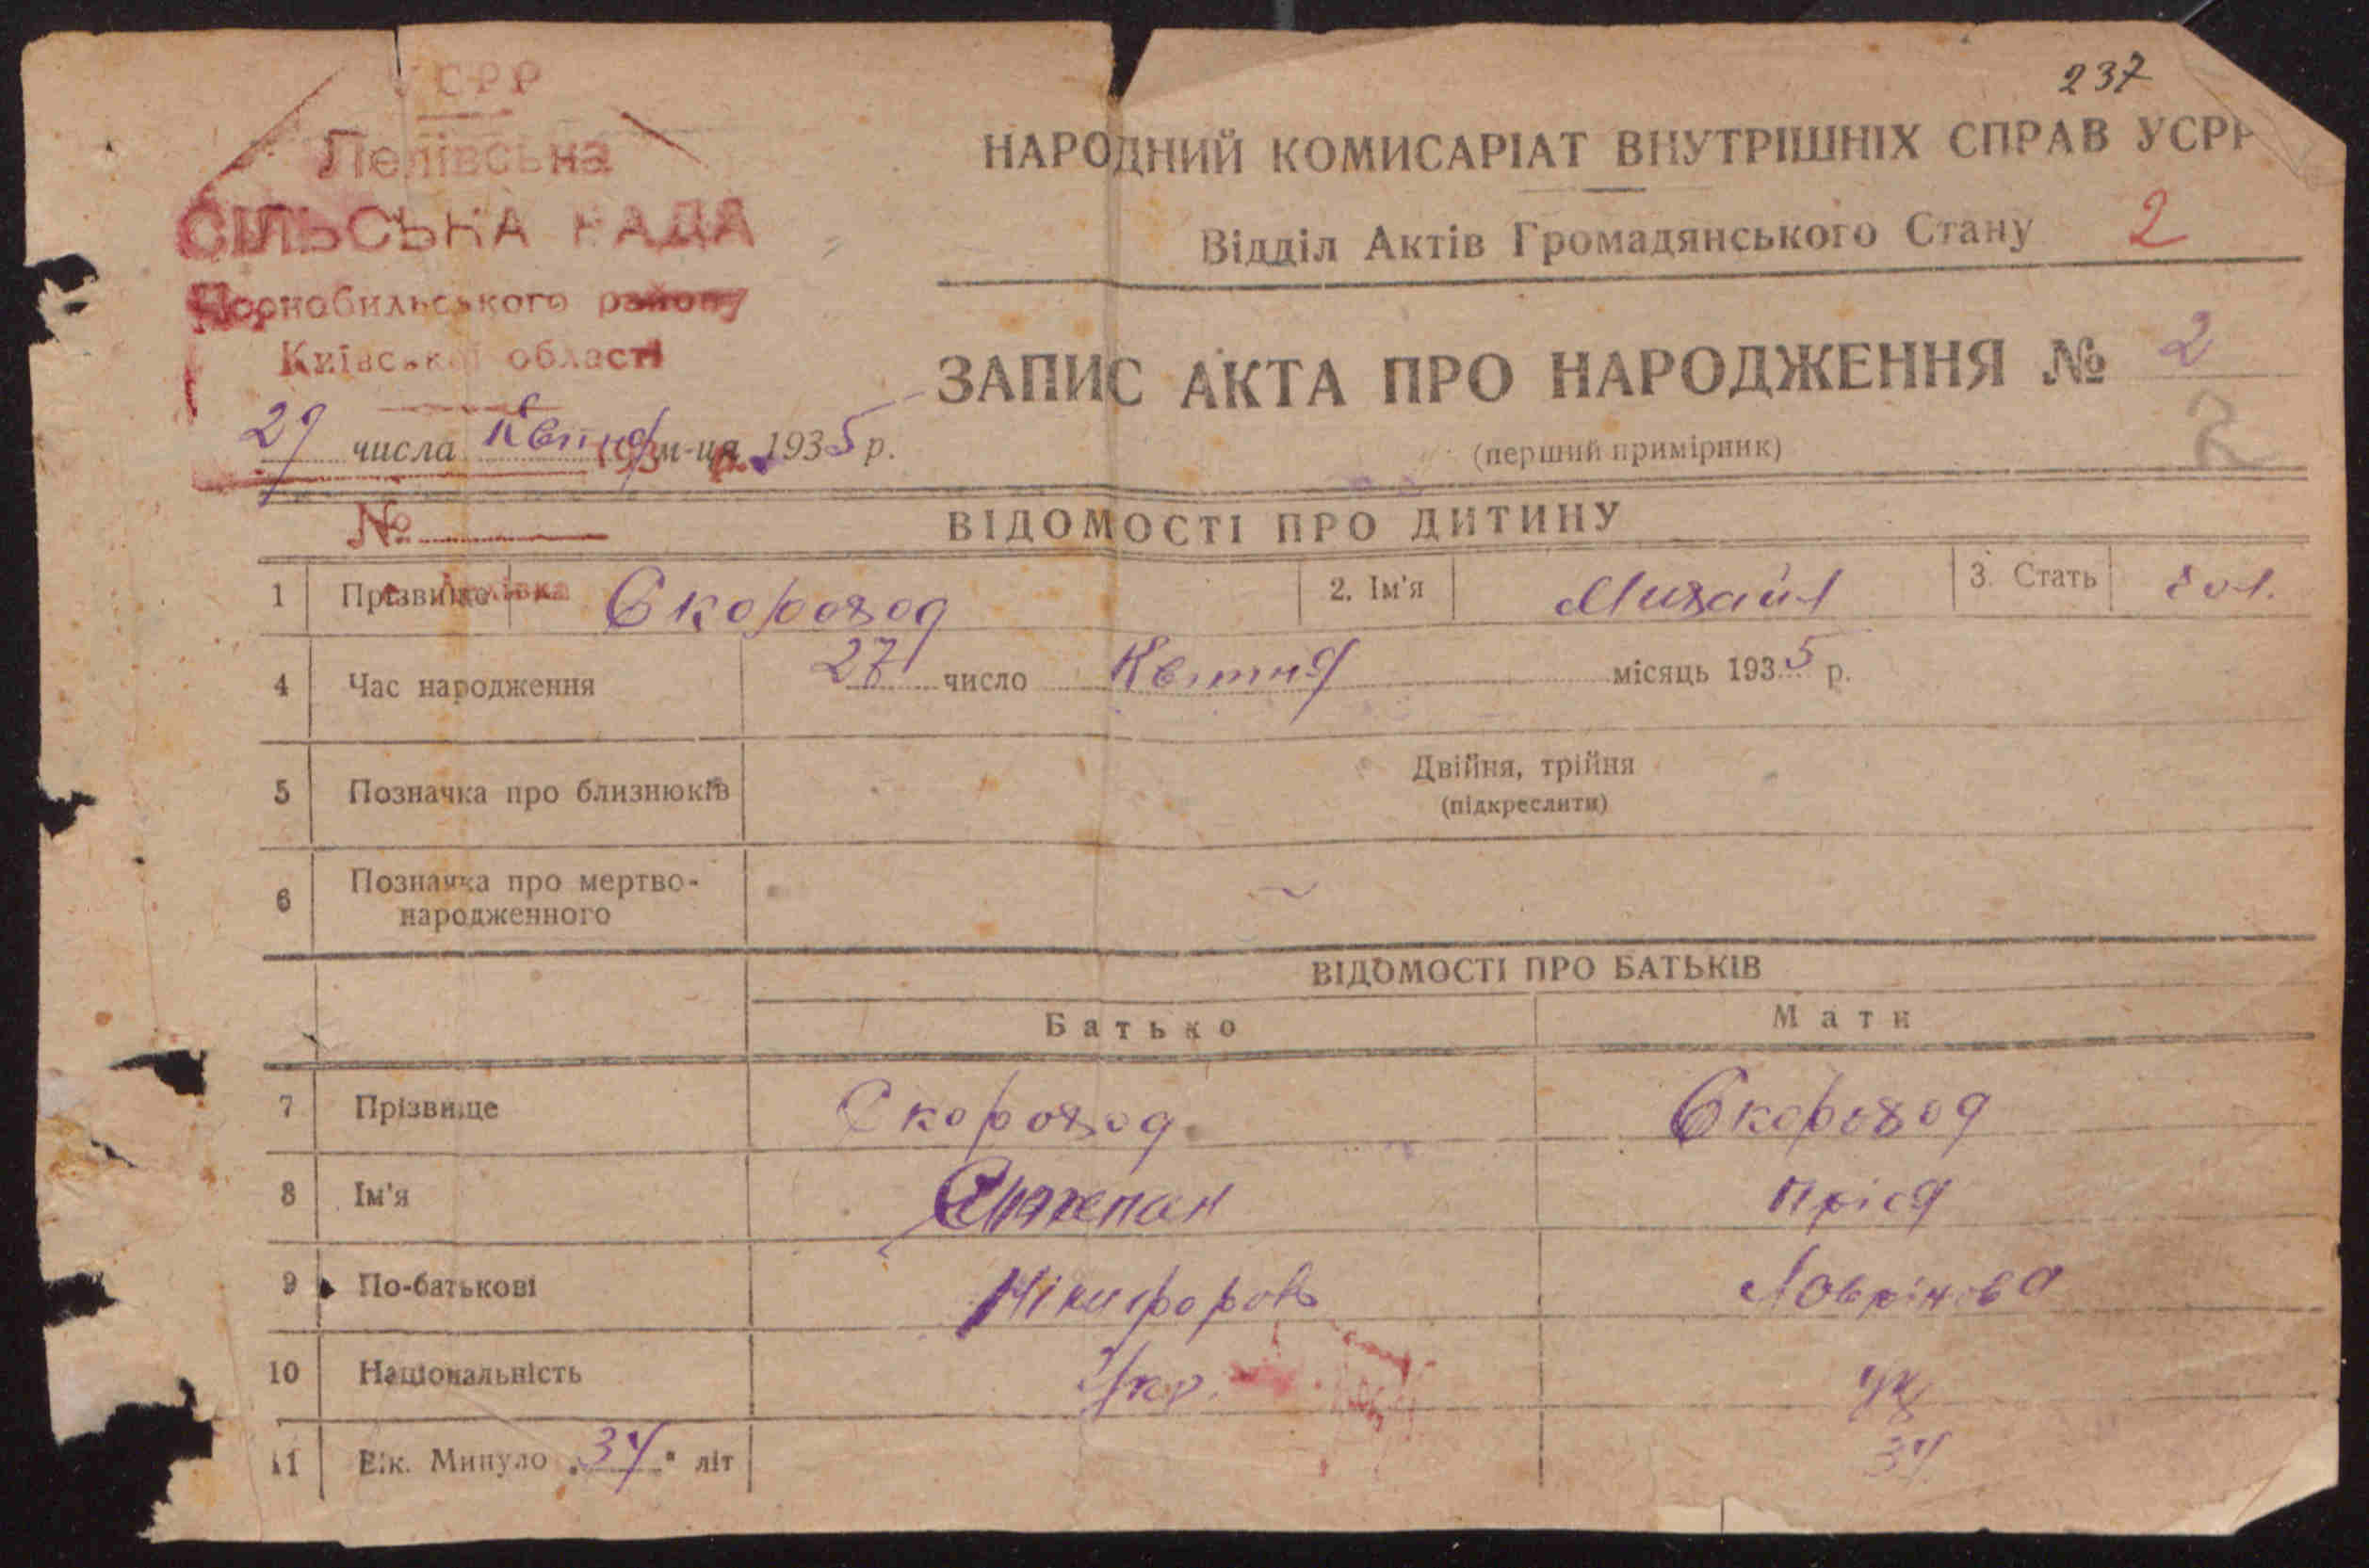 237
УСРР
Лелівська
СІЛЬСЬКА РАДА
Чорнобильського району
Київської області
НАРОДНИЙ КОМИСАРІАТ ВНУТРІШНІХ СПРАВ УСРР
Відділ Актів Громадянського Стану 2
ЗАПИС АКТА ПРО НАРОДЖЕННЯ № 2
2
(перший примірник)
29 числа Квітня м-ця 1935 р.
193 р.
№
ВІДОМОСТІ ПРО ДИТИНУ
1 Прізвище Скороход 2. Ім'я Михайл 3. Стать чол.
4 Час народження 27 число Квітня місяць 1935 р.
5 Позначка про близнюків Двійня, трійня
(підкреслити)
6 Позначка про мертво-
народженного
ВІДОМОСТІ ПРО БАТЬКІВ
Батько Мати
7 Прізвище Скороход Скороход
8 Ім'я Степан Пріся
9 По-батькові Нікифоров Лаврінова
10 Національність Укр. Ук
11 Вік. Минуло „34" літ 34